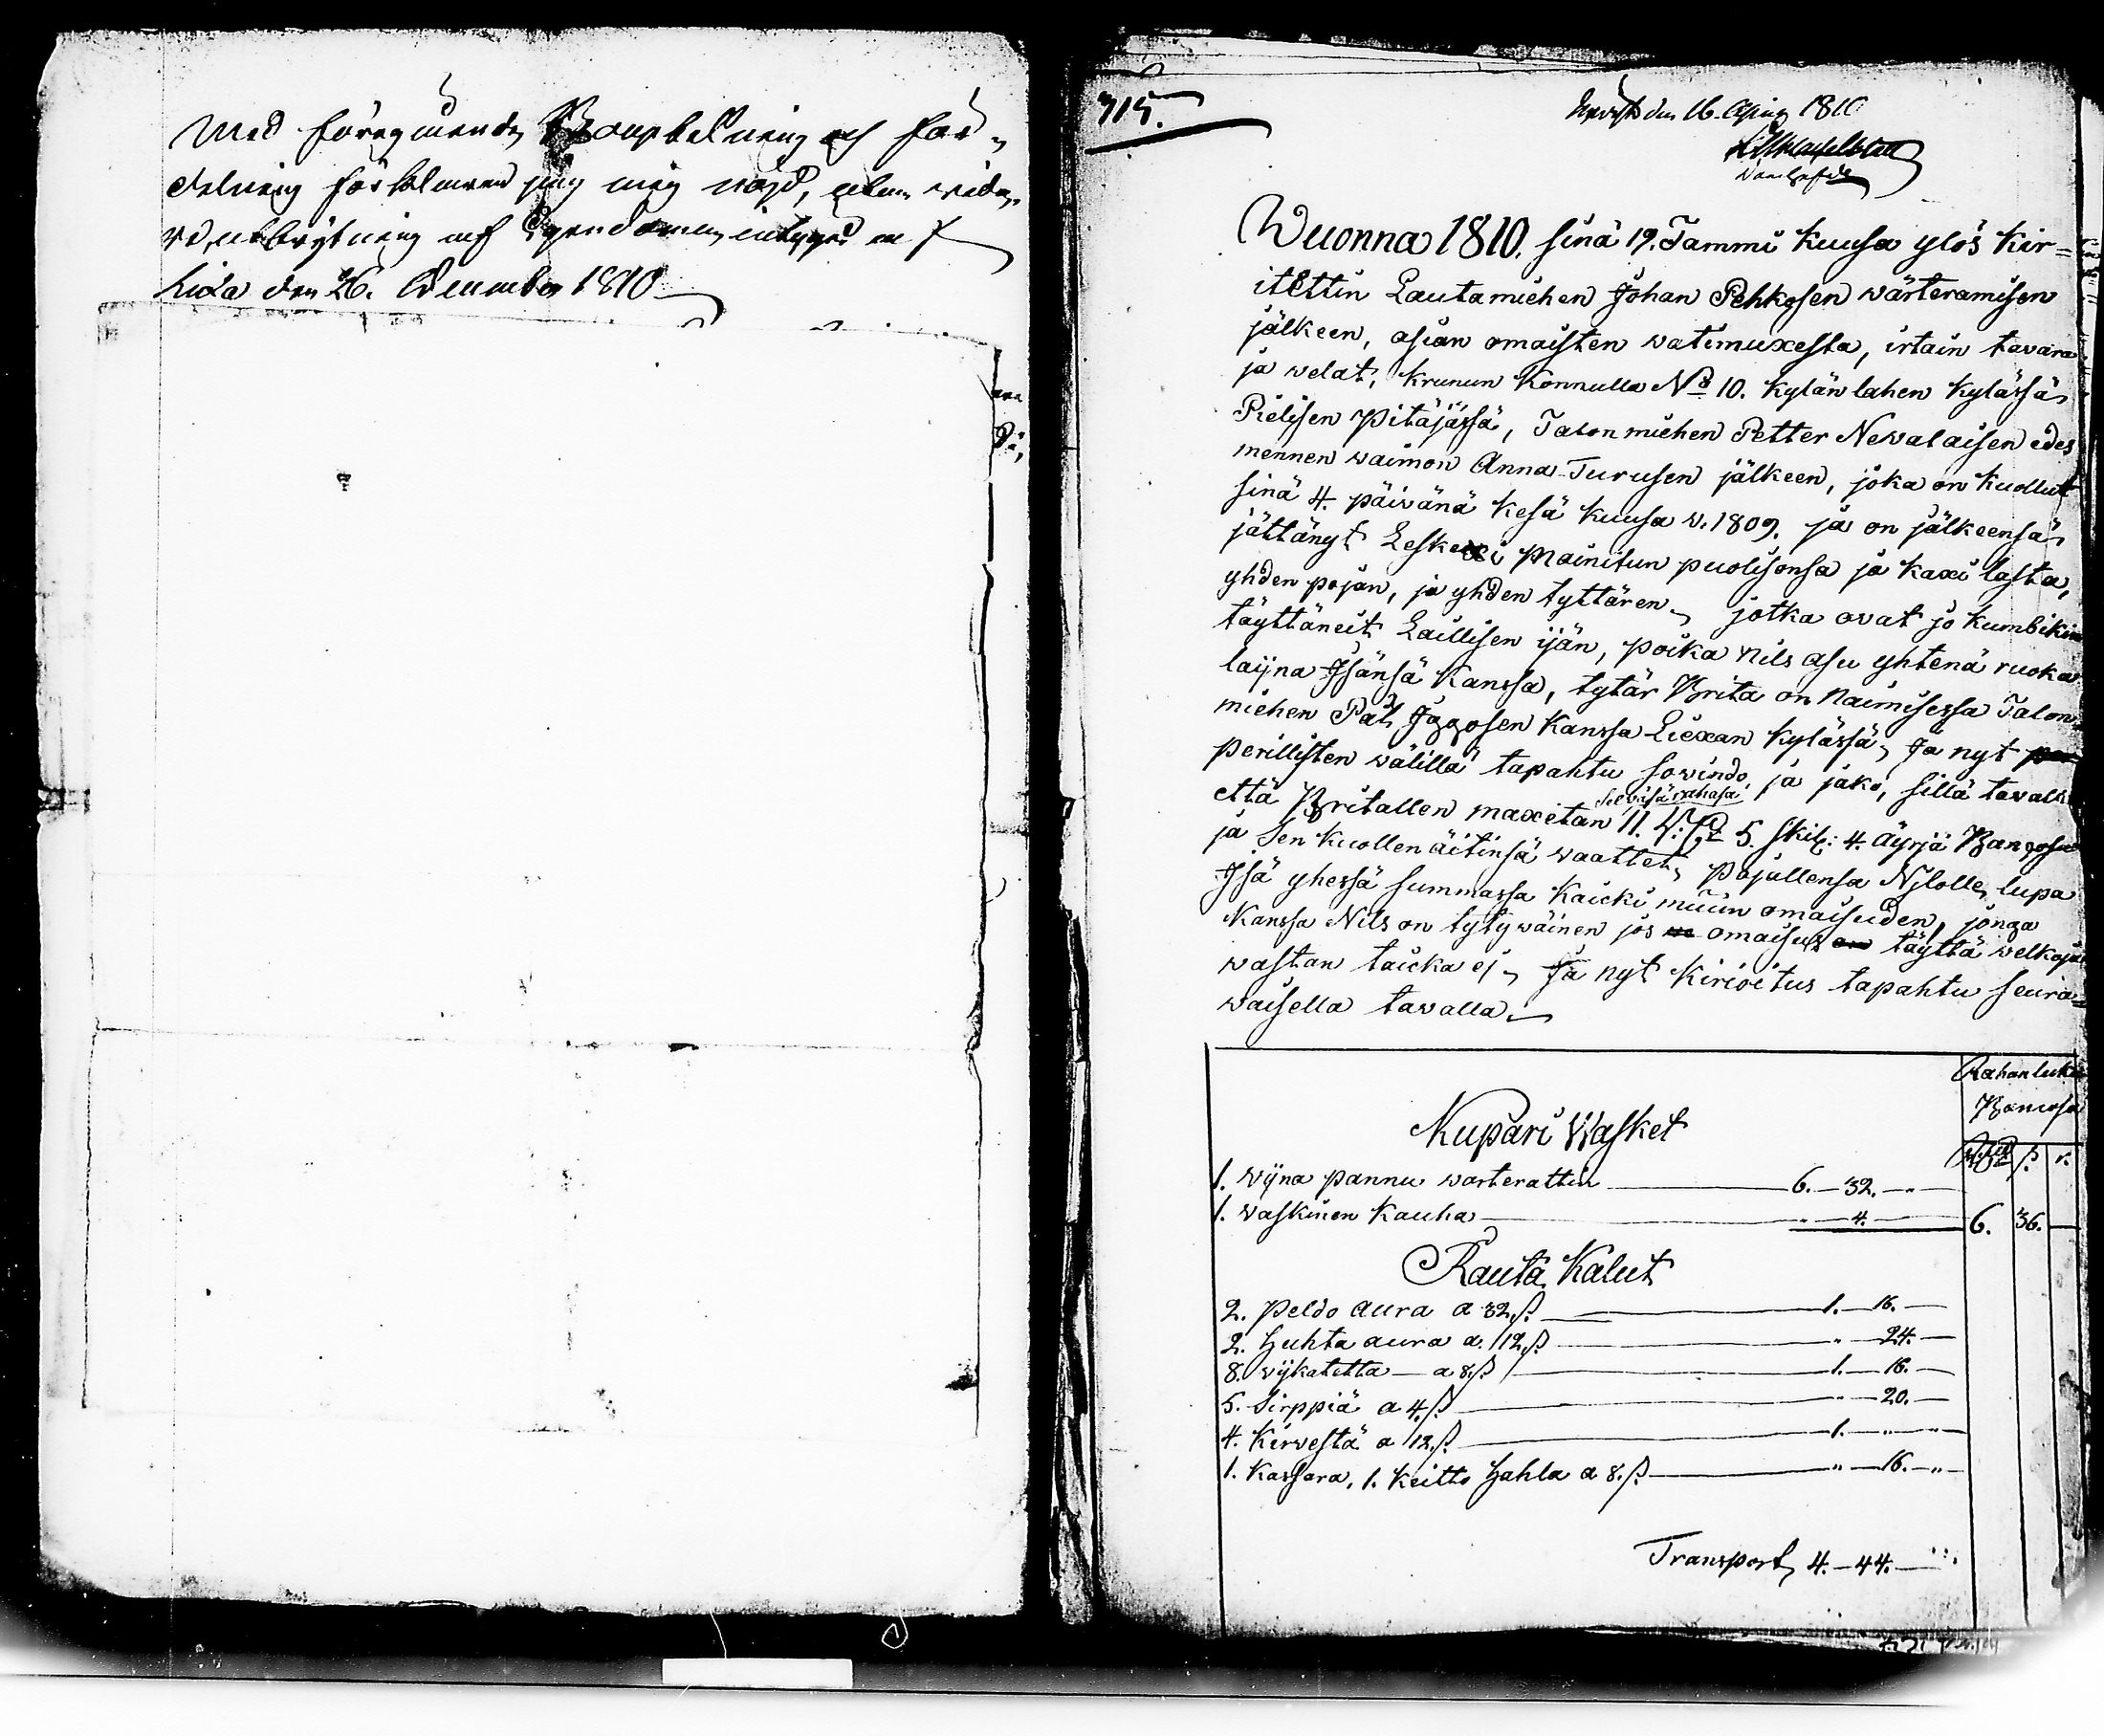 Med föregående Bouptekning och för-
delning förklarar jag mig nöjd, utan vida-
re utbrytning af Egendomen, intygar
Lida den 26. December 1810
715.
den 16. 1810
Wuonna 1810. sinä 19. Tammi kuusa ylös kir=
itettin Lautamiehen Johan Pehkosen wärteramisen
jälkeen, asian omaisten watimuxesta, irtain tavara
ja welat, Krunun Konnulla No 10. Kylänlahen kylässä
Pielisen pitäjässä, Talonmiehen Petter Newalaisen edes
mennen waimon Anna Turusen jälkeen, joka on kuollut
sinä 4. päiwänä kesä kuusa w. 1809. ja on jälkeensä
jättänyt Leskexi mainitun puolisonsa ja kaxi lasta,
yhden pojan, ja yhden tyttären, jotka owat jo kumbikin
täyttäneit Laillisen ijän, poika Nils asu yhtenä ruoka
laijna Isänsä kanssa, tytär Brita on naimisessa Talon
miehen Påhl Iggosen kanssa Liexan kylässä, Ja nyt
perillisten wälillä tapahtu sowindo ja jako, sillä tawalla
selwäsä rahasa
että Britallen maxetan 11. R:d 5. skil: 4. äyrjä Bangosa
ja sen kuollen äitinsä waattet, Pojallensa Nilolle, lupa
Isä yhessä summassa kaicki muun omaisuden, jonga
kanssa Nils on tytywäinen jos omaisus täyttä welkoja
wastan taicka ej, Ja nyt kirioitus tapahtu seura=
waisella tawalla
Rahan luku
Bancosa
Kupari Wasket
R:d ß. r.
1. wijna pannu warterattin 6. — 32. — „
1. waskinen kauha „ — 4. — 6. 36. —
Rauta Kalut
2. peldo aura a 32 ß. 1. — 16. —
2. huhta aura a. 12 ß „ — 24. —
8. wijkatetta — a 8 ß 1. — 16. —
5. sirppiä a 4 ß „ — 20. —
4. kirwestä a 12 ß. 1. — „ —
1. kassara, 1. keitto hahla a 8. ß „ — 16. — „
Transport, 4. — 44. —